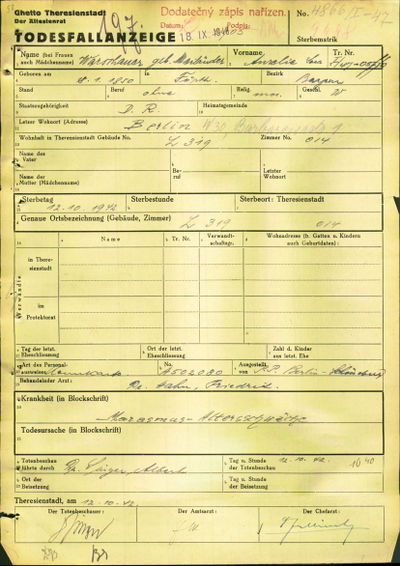 Ghetto Theresienstadt
Der Ältestenrat
TODESFALLANZEIGE
197.
Dodatečný zápis nařízen.
Datum:
Podpis:
18. IX. 1948
No.
Sterbematrik
Name (bei Frauen auch Mädchenname) Warschauer geb.
Vorname Amalie Sara
Tr. Nr.
Geboren am 8.1.1850 in Fürth Bezirk Bayern
Stand Beruf ohne Relig. mos. Geschl. W
Staatsgehörigkeit D.R. Heimatsgemeinde
Letzter Wohnort (Adresse) Berlin W30,
Wohnhaft in Theresienstadt Gebäude No. L 319 Zimmer No. 014
Name des Vater
Beruf
Letzter Wohnort
Name der Mutter (Mädchenname)
Sterbetag 12.10.1942 Sterbestunde Sterbeort: Theresienstadt
Genaue Ortsbezeichnung (Gebäude, Zimmer) L 319 014
Verwandte
Name
Tr. Nr.
Verwandtschaftsgr.
Wohnadresse (b. Gatten u. Kindern auch Geburtdaten):
in Theresienstadt
im Protektorat
Tag der letzt. Eheschliessung
Ort der letzt. Eheschliessung
Zahl d. Kinder aus letzt. Ehe
Art des Personalausweises Kennkarte No. A502080 Ausgestellt von P.P. Berlin-Schöneberg
Behandelnder Arzt: Dr. Hahn, Friedrich
Krankheit (in Blockschrift)
Marasmus - Altersschwäche
Todesursache (in Blockschrift)
Totenbeschau führte durch Dr. Albert
Tag u. Stunde der Totenbeschau 12.10.42. 16 40
Ort der Beisetzung
Tag u. Stunde der Beisetzung
Theresienstadt, am 12.10.42.
Der Totenbeschauer:
Der Amtsarzt:
Der Chefarzt: